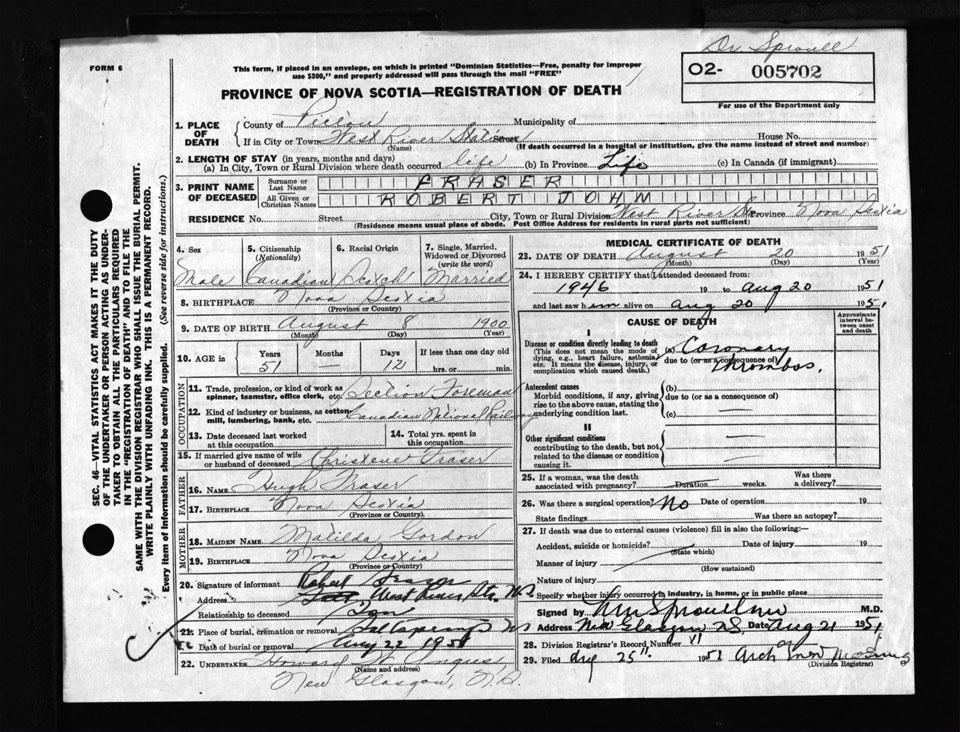 Dr. Sproull
FORM 6
This form, if placed in an envelope, on which is printed "Dominion Statistics—Free, penalty for improper
use $300," and properly addressed will pass through the mail "FREE"
O2- 005702
PROVINCE OF NOVA SCOTIA—REGISTRATION OF DEATH
For use of the Department only
1. PLACE OF DEATH
County of Pictou Municipality of
If in City or Town West River Station Street House No.
(Name) (If death occurred in a hospital or institution, give the name instead of street and number)
2. LENGTH OF STAY (in years, months and days)
(a) In City, Town or Rural Division where death occurred life (b) In Province Life (c) In Canada (if immigrant)
3. PRINT NAME OF DECEASED
Surname or Last Name FRASER
All Given or Christian Names ROBERT JOHN
RESIDENCE No. Street City, Town or Rural Division West River Sta. Province Nova Scotia
(Residence means usual place of abode. Post Office Address for residents in rural parts not sufficient)
4. Sex 5. Citizenship (Nationality) 6. Racial Origin 7. Single, Married, Widowed or Divorced (write the word)
Male Canadian Scotch Married
8. BIRTHPLACE Nova Scotia
(Province or Country)
9. DATE OF BIRTH August 8 1900
(Month) (Day) (Year)
10. AGE IN Years Months Days If less than one day old
51 — 12 hrs. or min.
OCCUPATION
11. Trade, profession, or kind of work as
spinner, teamster, office clerk, etc. Section Foreman
12. Kind of industry or business, as cotton
mill, lumbering, bank, etc. Canadian National Railway
13. Date deceased last worked
at this occupation
14. Total yrs. spent in
this occupation
15. If married give name of wife
or husband of deceased Fraser
FATHER
16. NAME Hugh Fraser
17. BIRTHPLACE Nova Scotia
(Province or Country)
MOTHER
18. MAIDEN NAME Matilda Gordon
19. BIRTHPLACE Nova Scotia
(Province or Country)
20. Signature of informant Fraser
Address West River Sta. N.S
Relationship to deceased Son
21. Place of burial, cremation or removal Saltsprings NS
Date of burial or removal Aug 22 1951
22. UNDERTAKER Howard
(Name and address)
New Glasgow, N.S.
MEDICAL CERTIFICATE OF DEATH
23. DATE OF DEATH August 20 1951
(Month) (Day) (Year)
24. I HEREBY CERTIFY that I attended deceased from:
1946 19 to Aug 20 1951
and last saw him alive on Aug 20 1951
CAUSE OF DEATH
Approximate interval between onset and death
I
Disease or condition directly leading to death
(This does not mean the mode of dying, e.g., heart failure, asthenia, etc. It means the disease, injury, or complication which caused death.)
(a) Coronary
due to (or as a consequence of)
Thrombos.
Antecedent causes
Morbid conditions, if any, giving rise to the above cause, stating the underlying condition last.
(b)
due to (or as a consequence of)
(c) —
II
Other significant conditions
contributing to the death, but not related to the disease or condition causing it.
25. If a woman, was the death
associated with pregnancy? Duration weeks. Was there a delivery?
26. Was there surgical operation? No Date of operation 19
State findings Was there an autopsy?
27. If death was due to external causes (violence) fill in also the following:—
Accident, suicide or homicide? Date of injury 19
(State which)
Manner of injury
(How sustained)
Nature of injury
Specify whether injury occurred in industry, in home, or in public place
Signed by M.D.
Address New Glasgow N.S. Date Aug 21 1951
28. Division Registrar's Record Number
29. Filed Aug 25 1951
(Division Registrar)
SEC. 46—VITAL STATISTICS ACT MAKES IT THE DUTY
OF THE UNDERTAKER OR PERSON ACTING AS UNDER-
TAKER TO OBTAIN ALL THE PARTICULARS REQUIRED
IN THE "REGISTRATION OF DEATH" AND TO FILE THE
SAME WITH THE DIVISION REGISTRAR WHO SHALL ISSUE THE BURIAL PERMIT.
WRITE PLAINLY WITH UNFADING INK. THIS IS A PERMANENT RECORD.
Every item of Information should be carefully supplied. (See reverse side for instructions.)